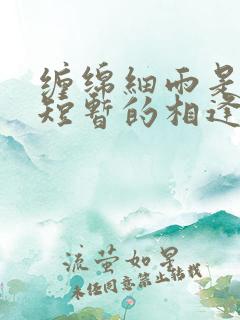 缠绵細雨是
短暫的相逢
流萤如星
未经同意禁止转载